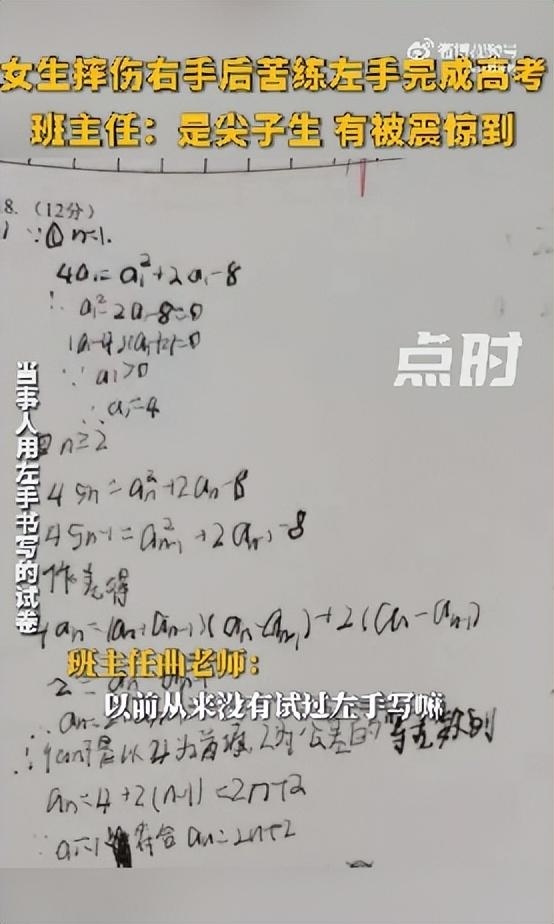 女生摔伤右手后苦练左手完成高考
班主任：是尖子生 有被震惊到
8.（12分）
∵① n=1.
4a₁=a₁²+2a₁-8
∴ a₁²-2a₁-8=0
(a₁-4)(a₁+2)=0
∵ a₁>0
∴ a₁=4
n≥2
4Sn=an²+2an-8
4Sn-1=an-1²+2an-1-8
作差得
4an=(an+an-1)(an-an-1)+2(an-an-1)
∴{an}是以4为首项，2为公差的等差数列
an=4+2(n-1)=2n+2
符合 an=2n+2
点时
当事人用左手书写的试卷
班主任曲老师：
以前从来没有试过左手写嘛